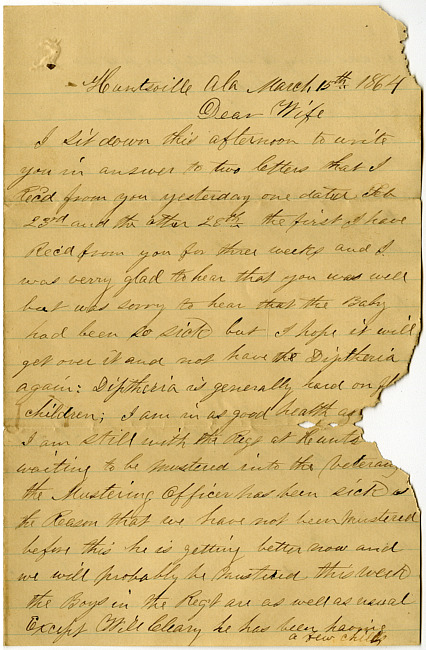 Huntsville Ala March 15th 1864
Dear Wife
I sit down this afternoon to write
you in answer to two letters that I
Recd from you yesterday one dated Feb
23rd and the other 28th the first I have
Recd from you for three weeks and I
was verry glad to hear that you was well
but was sorry to hear that the Baby
had been so sick but I hope it will
get over it and not have the Diptheria
again: Diptheria is generally hard on
children; I am in as good health as
I am still with the Regt at Hunts
waiting to be mustered into the Veterans
the Mustering Officer has been sick is
the Reason that we have not been mustered
before this he is getting better now and
we will probably be mustered this week
the Boys in the Regt are as well as usual
Except Will Cleary he has been having
a few chills